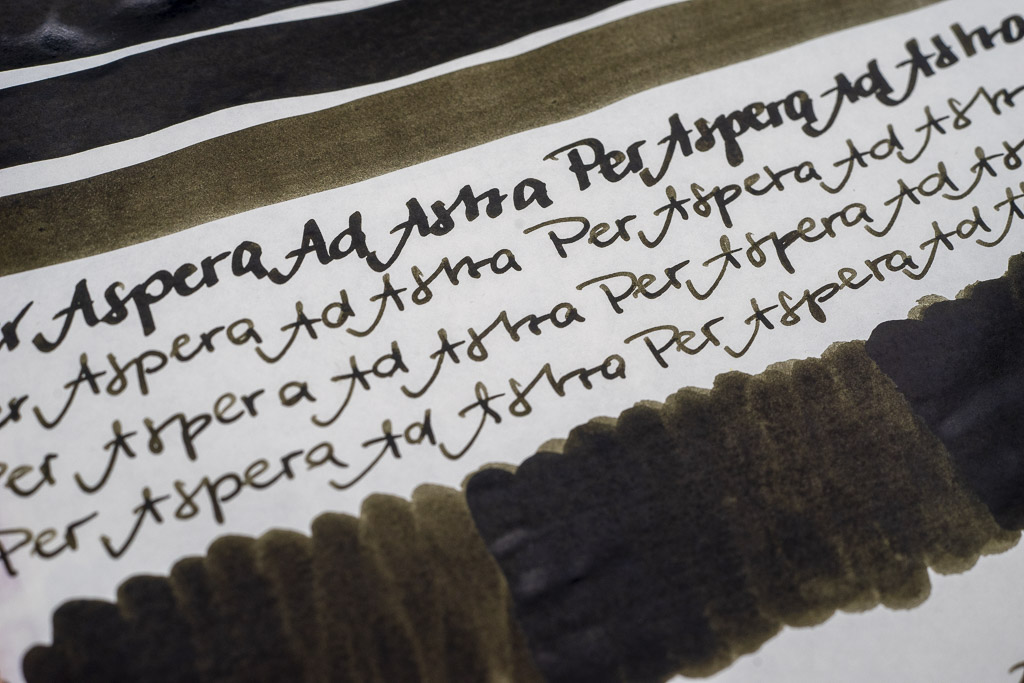 Aspera Ad Astra Per Aspera Ad Astra
Aspera Ad Astra Per Aspera Ad Astra
Per Aspera Ad Astra Per Aspera Ad
Per Aspera Ad Astra Per Aspera Ad